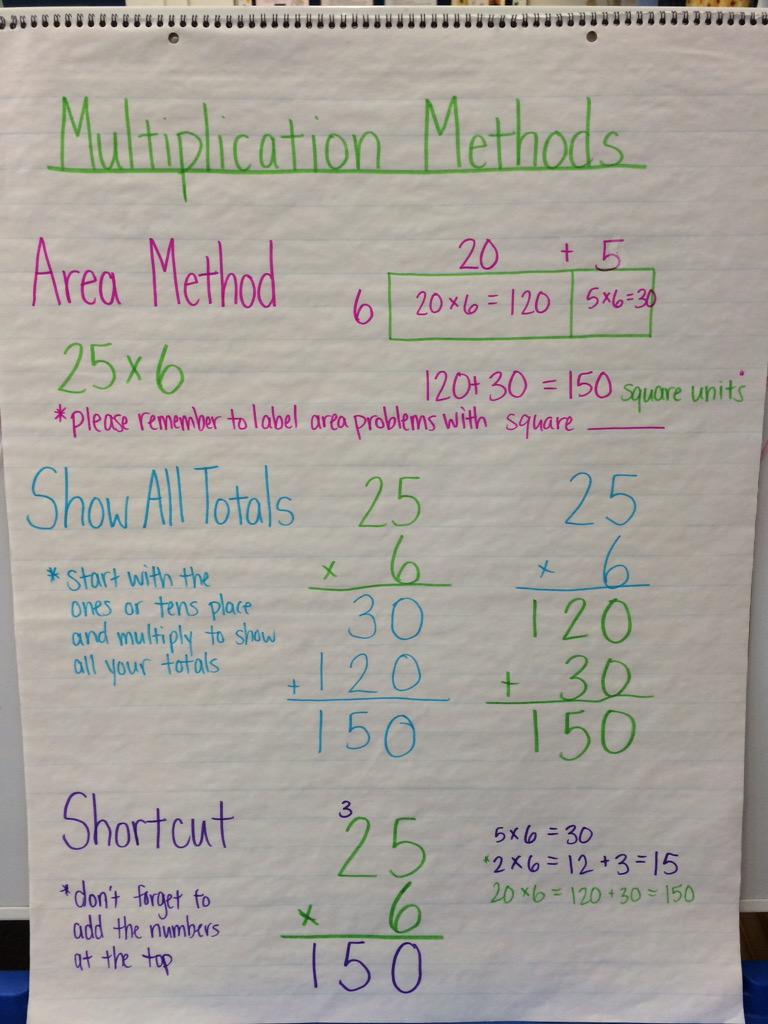 Multiplication Methods
Area Method
20 + 5
6
20 x 6 = 120
5x6=30
25 x 6
120+ 30 = 150 square units
*please remember to label area problems with square ____
Show All Totals
* start with the
ones or tens place
and multiply to show
all your totals
25
x 6
30
+120
150
25
x 6
120
+ 30
150
Shortcut
*don't forget to
add the numbers
at the top
3
25
x 6
150
5x6 = 30
*2x6 = 12 +3 =15
20x6 = 120 +30 = 150